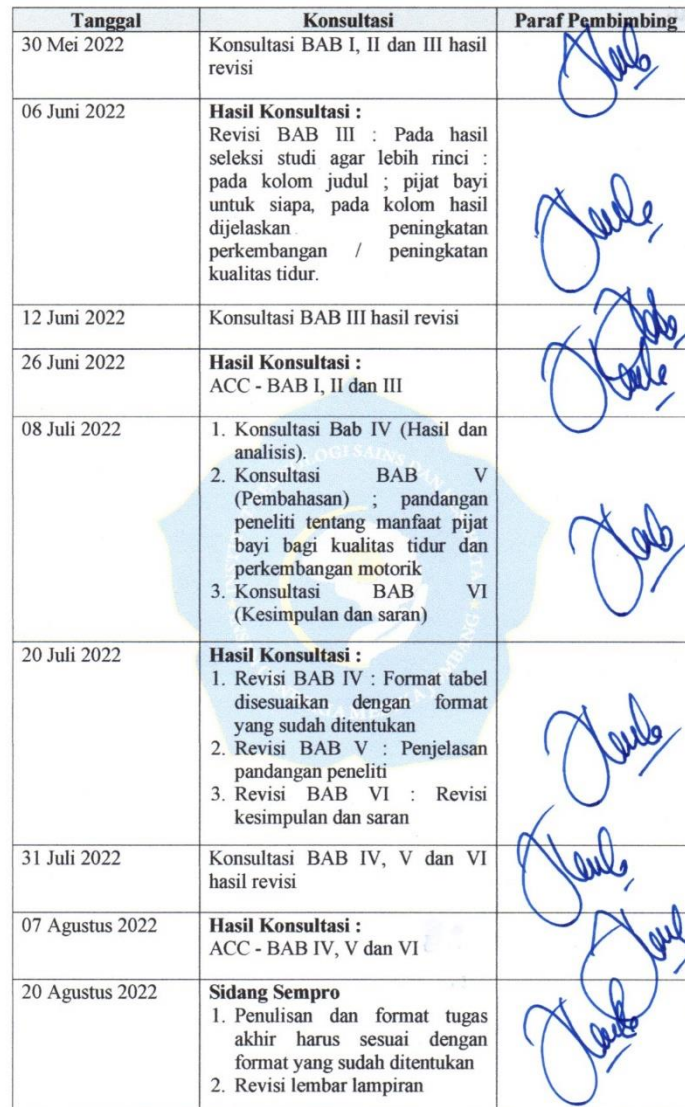 Tanggal Konsultasi Paraf Pembimbing
30 Mei 2022 Konsultasi BAB I, II dan III hasil
revisi
06 Juni 2022 Hasil Konsultasi :
Revisi BAB III : Pada hasil
seleksi studi agar lebih rinci :
pada kolom judul ; pijat bayi
untuk siapa, pada kolom hasil
dijelaskan peningkatan
perkembangan / peningkatan
kualitas tidur.
12 Juni 2022 Konsultasi BAB III hasil revisi
26 Juni 2022 Hasil Konsultasi :
ACC - BAB I, II dan III
08 Juli 2022 1. Konsultasi Bab IV (Hasil dan
analisis).
2. Konsultasi BAB V
(Pembahasan) ; pandangan
peneliti tentang manfaat pijat
bayi bagi kualitas tidur dan
perkembangan motorik
3. Konsultasi BAB VI
(Kesimpulan dan saran)
20 Juli 2022 Hasil Konsultasi :
1. Revisi BAB IV : Format tabel
disesuaikan dengan format
yang sudah ditentukan
2. Revisi BAB V : Penjelasan
pandangan peneliti
3. Revisi BAB VI : Revisi
kesimpulan dan saran
31 Juli 2022 Konsultasi BAB IV, V dan VI
hasil revisi
07 Agustus 2022 Hasil Konsultasi :
ACC - BAB IV, V dan VI
20 Agustus 2022 Sidang Sempro
1. Penulisan dan format tugas
akhir harus sesuai dengan
format yang sudah ditentukan
2. Revisi lembar lampiran